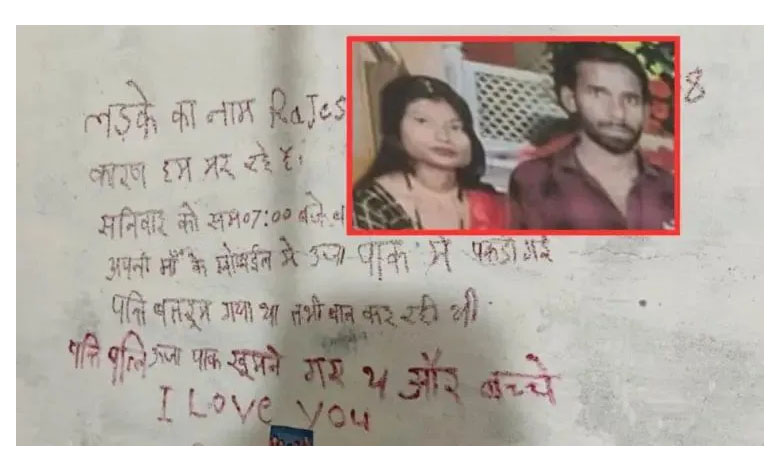 लड़के का नाम RaJes 8
कारण हम मर रहे है।
सनिवार को सम07:00 बजे
अपनी माँ के मोबाईल मे उर्जा पार्क में पकड़ा गई
पत्ति बतरूम गया था तभी बात कर रही थी
पत्ति पत्नि उर्जा पाक घूमने गए थ और बच्चे
I Love you